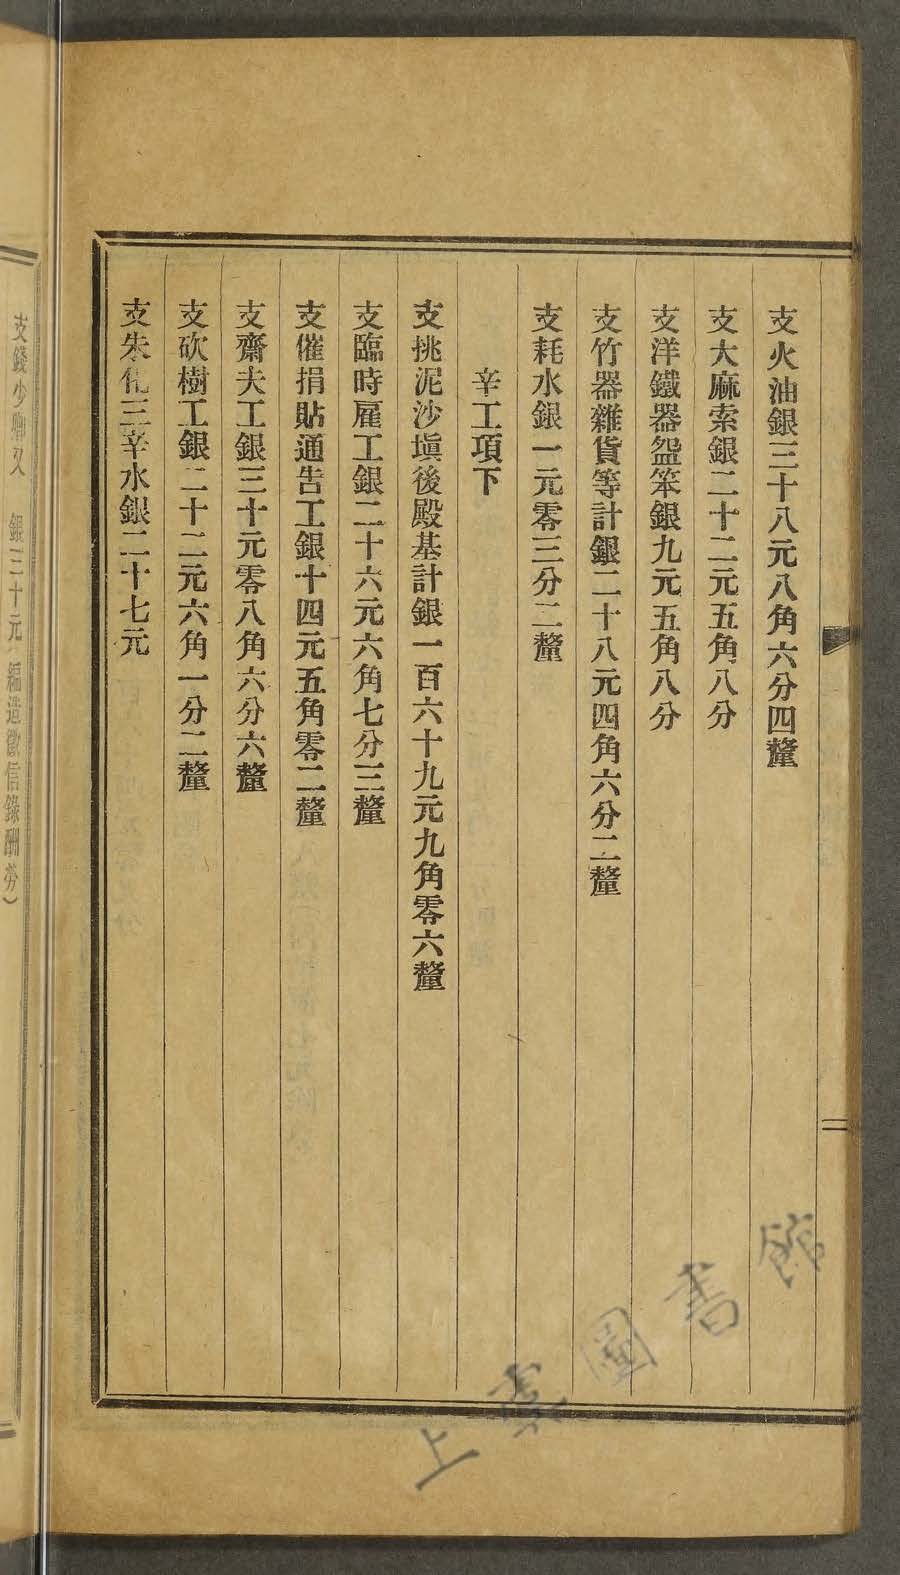 支火油銀三十八元八角六分四釐
支大麻索銀二十二元五角八分
支洋鐵器盌笨銀九元五角八分
支竹器雜貨等計銀二十八元四角六分二釐
支耗水銀一元零三分二釐
辛工項下
支挑泥沙塡後殿基計銀一百六十九元九角零六釐
支臨時雇工銀二十六元六角七分三釐
支催捐貼通告工銀十四元五角零二釐
支齋夫工銀三十元零八角六分六釐
支砍樹工銀二十二元六角一分二釐
支朱化三辛水銀二十七元
支錢少卿又 銀三十元 編造徵信錄酬勞）
上虞圖書館